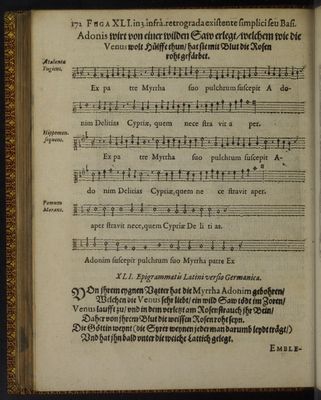 172 FUGA XLI. in 3. infrà. retrograda existente simplici seu Basi.
Adonis wirt von einer wilden Saw erlegt/ welchem wie die
Venus wolt Hülffe thun/ hat sie mit Blut die Rosen
roht gefärbet.
Atalanta
Fugiens.
Ex pa tre Myrrha suo pulchrum suscepit A do-
nim Delitias Cypriæ, quem nece stra vit a per.
Hippomen.
sequens.
Ex pa tre Myrrha suo pulchrum suscepit A-
do nim Delitias Cypriæ, quem ne ce stravit aper.
Pomum
Morans.
aper stravit nece, quem Cypriæ De li ti as.
Adonim suscepit pulchrum suo Myrrha patre Ex
XLI. Epigrammatis Latini versio Germanica.
VOn ihrem eygnen Vatter hat die Myrrha Adonim gebohren/
Welchen die Venus sehr liebt/ ein wild Saw tödt im Zoren/
Venus laufft zu/ und in dem verletzt am Rosenstrauch ihr Bein/
Daher von ihrem Blut die weissen Rosen roht seyn.
Die Göttin weynt (die Syrer weynen jederman darumb leydt trägt/)
Und hat ihn bald unter die weiche Lattich gelegt.
EMBLE-